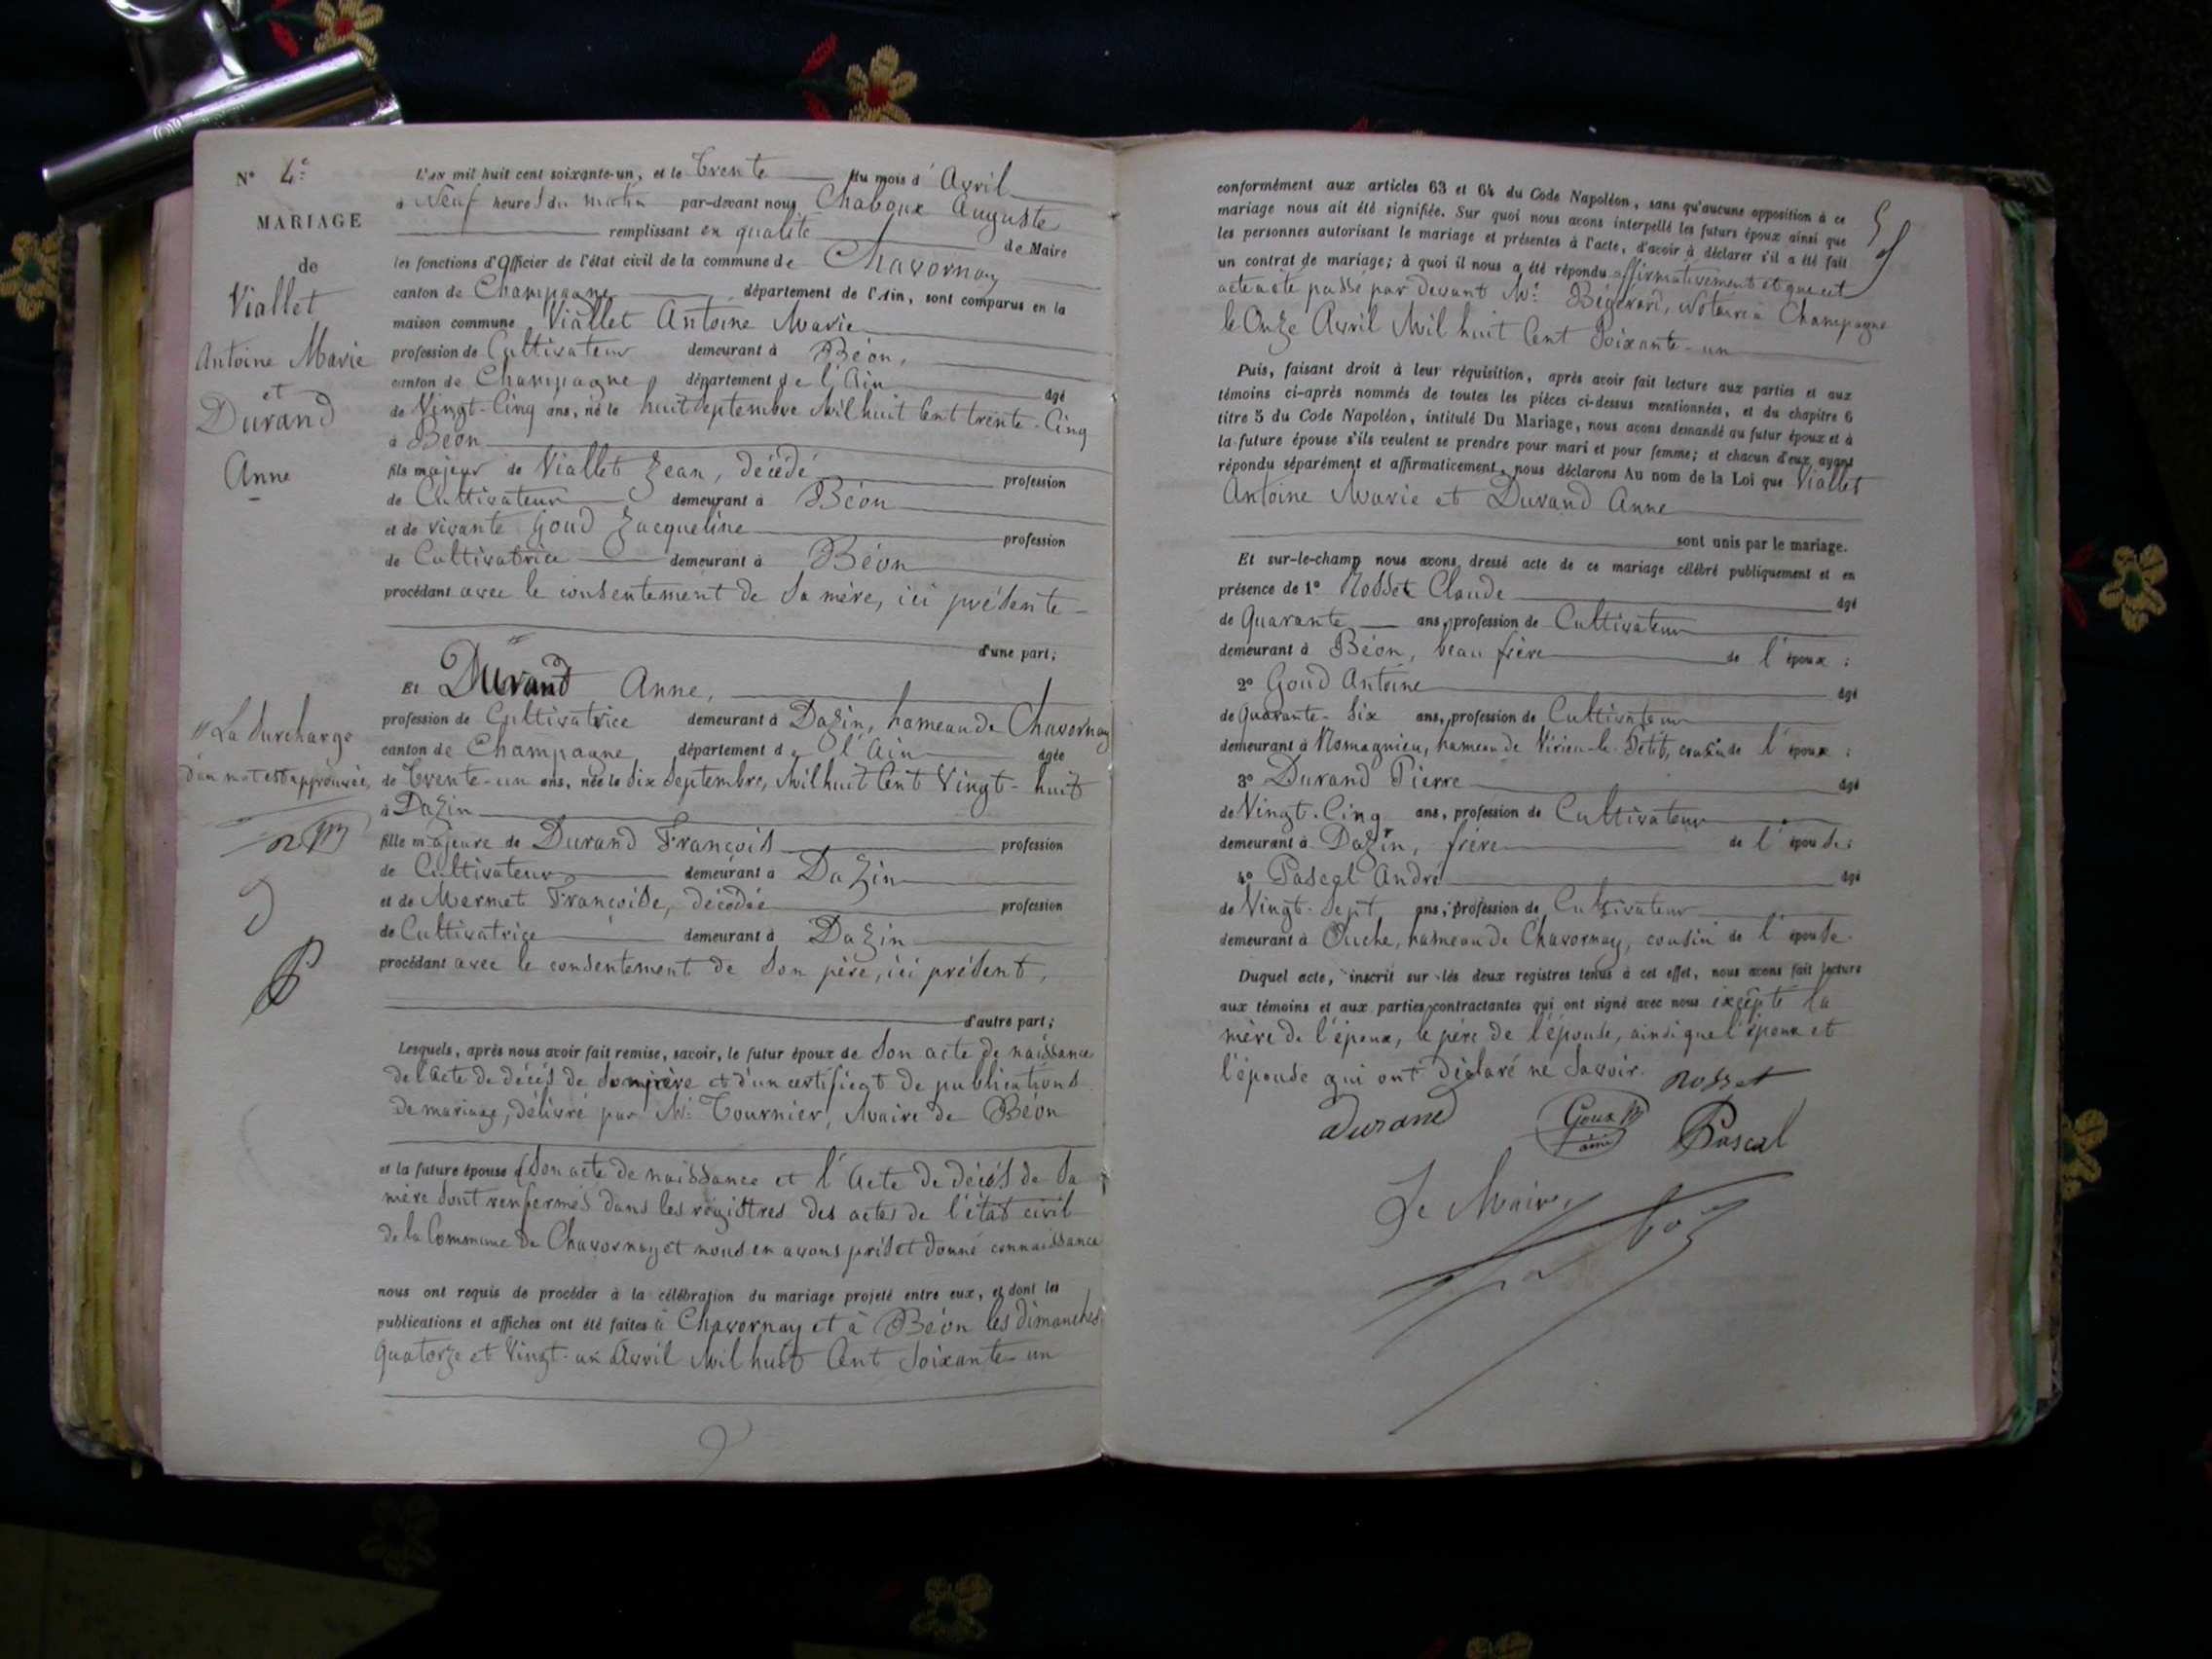 N° 4e
MARIAGE
de
Viallet
Antoine Marie
et
Durand
Anne
L'an mil huit cent soixante-un, et le trente du mois d'Avril
à Neuf heures du matin par-devant nous Chaboux Auguste
remplissant en qualité de Maire
les fonctions d'Officier de l'état civil de la commune de Chavornay
canton de Champagne département de l'Ain, sont comparus en la
maison commune Viallet Antoine Marie
profession de Cultivateur demeurant à Béon,
canton de Champagne, département de l'Ain âgé
de Vingt-Cinq ans, né le huit Septembre Mil huit Cent trente-Cinq
à Béon
fils majeur de Viallet Jean, décédé profession
de Cultivateur demeurant à Béon
et de vivante Goud Jacqueline profession
de Cultivatrice demeurant à Béon
procédant avec le consentement de Sa mère, ici présente
d'une part;
Et " Durand Anne,
profession de Cultivatrice demeurant à Dazin, hameau de Chavornay
canton de Champagne département de l'Ain âgée
de Trente-un ans, née le dix Septembre, Mil huit Cent Vingt-huit
à Dazin
fille majeure de Durand François profession
de Cultivateur demeurant à Dazin
et de Mermet Françoise, décédée profession
de Cultivatrice demeurant à Dazin
procédant avec le consentement de Son père, ici présent,
d'autre part;
" La Surcharge
d'un mot est approuvée,
Lesquels, après nous avoir fait remise, savoir, le futur époux de Son acte de naissance
de l'acte de décès de son père et d'un certificat de publications
de mariage, délivré par Mr Tournier, Maire de Béon
et la future épouse Son acte de naissance et l'Acte de décès de Sa
mère Sont renfermés dans les régistres des actes de l'état civil
de la Commune de Chavornay et nous en avons pris et donné connaissance
nous ont requis de procéder à la célébration du mariage projeté entre eux, et dont les
publications et affiches ont été faites à Chavornay et à Béon les dimanches
quatorze et Vingt-un Avril Mil huit Cent Soixante-un
conformément aux articles 63 et 64 du Code Napoléon, sans qu'aucune opposition à ce
mariage nous ait été signifiée. Sur quoi nous avons interpellé les futurs époux ainsi que
les personnes autorisant le mariage et présentes à l'acte, d'avoir à déclarer s'il a été fait
un contrat de mariage; à quoi il nous a été répondu affirmativement et que cet
acte a été passé par devant Me Notaire à Champagne
le Onze Avril Mil huit Cent Soixante-un
Puis, faisant droit à leur réquisition, après avoir fait lecture aux parties et aux
témoins ci-après nommés de toutes les pièces ci-dessus mentionnées, et du chapitre 6
titre 5 du Code Napoléon, intitulé Du Mariage, nous avons demandé au futur époux et à
la future épouse s'ils veulent se prendre pour mari et pour femme; et chacun d'eux ayant
répondu séparément et affirmativement, nous déclarons Au nom de la Loi que Viallet
Antoine Marie et Durand Anne
sont unis par le mariage.
Et sur-le-champ nous avons dressé acte de ce mariage célébré publiquement et en
présence de 1° Rosset Claude âgé
de Quarante ans, profession de Cultivateur
demeurant à Béon, beau frère de l'époux;
2° Goud Antoine âgé
de Quarante-Six ans, profession de Cultivateur
demeurant à Romagnieu, hameau de Virieu-le-Petit, cousin de l'époux;
3° Durand Pierre âgé
de Vingt-Cinq ans, profession de Cultivateur
demeurant à Dazin, frère de l'épouse;
4° Pascal André âgé
de Vingt-Sept ans, profession de Cultivateur
demeurant à Ouche, hameau de Chavornay, cousin de l'épouse
Duquel acte, inscrit sur les deux registres tenus à cet effet, nous avons fait lecture
aux témoins et aux parties contractantes qui ont signé avec nous excepté la
mère de l'époux, le père de l'épouse, ainsi que l'époux et
l'épouse qui ont déclaré ne Savoir. Rosset
Durand Pascal
Le Maire,